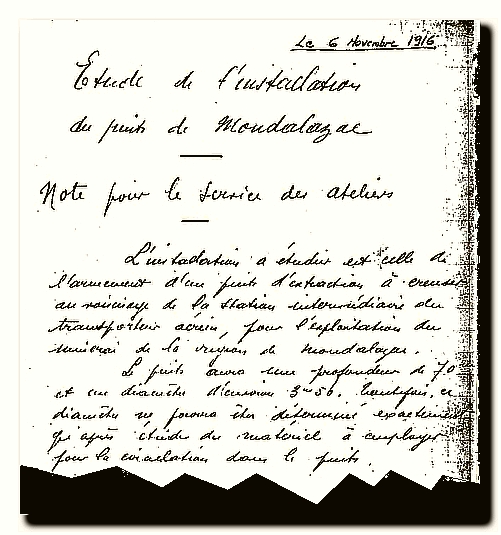 Le 6 Novembre 1916
Etude de l'installation
du puits de Mondalazac
Note pour le Service des ateliers
L'installation à étudier est celle de
l'armement d'un puits d'extraction à creuser
au voisinage de la station intermédiaire du
transporteur aérien, pour l'exploitation du
minerai de la region de Mondalazac.
Le puits aura une profondeur de 70
et un diamètre d'environ 3m50. Toutefois, ce
diamètre ne pourra être déterminé exactement
qu'après étude du matériel à employer
pour la circulation dans le puits.